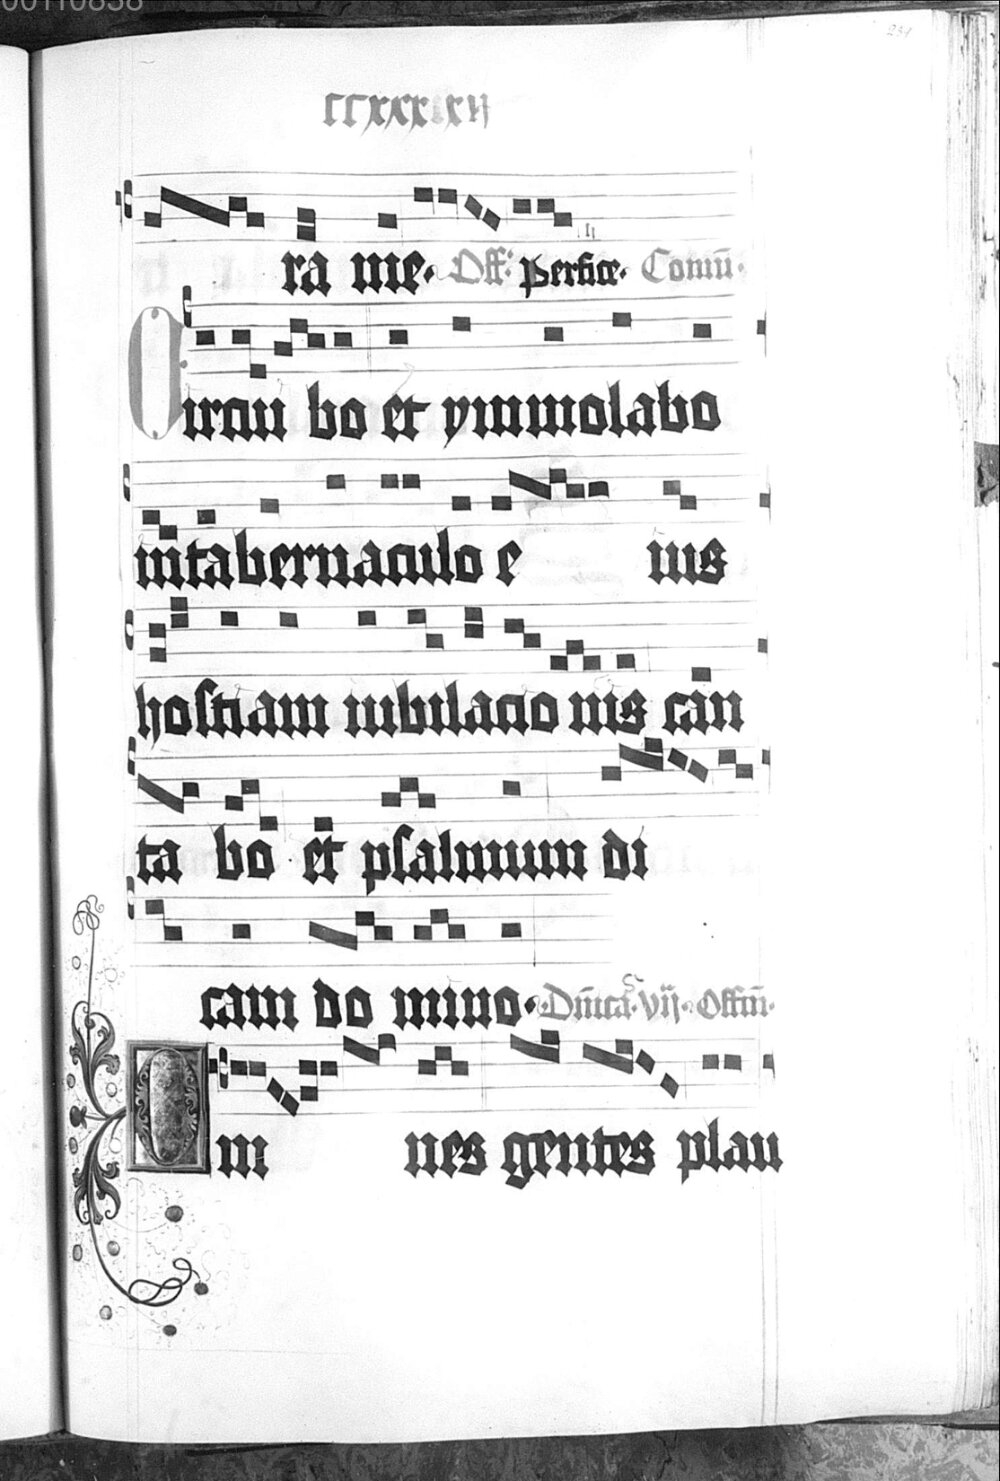 00110838
231
ra me. Off. Perfice. Comū.
Circui bo et ymmolabo
in tabernaculo e ius
hostiam iubilacio nis can
ta bo et psalmum di
cam do mino. Dn̄ica. vij. Offm̄.
Om nes gentes plau